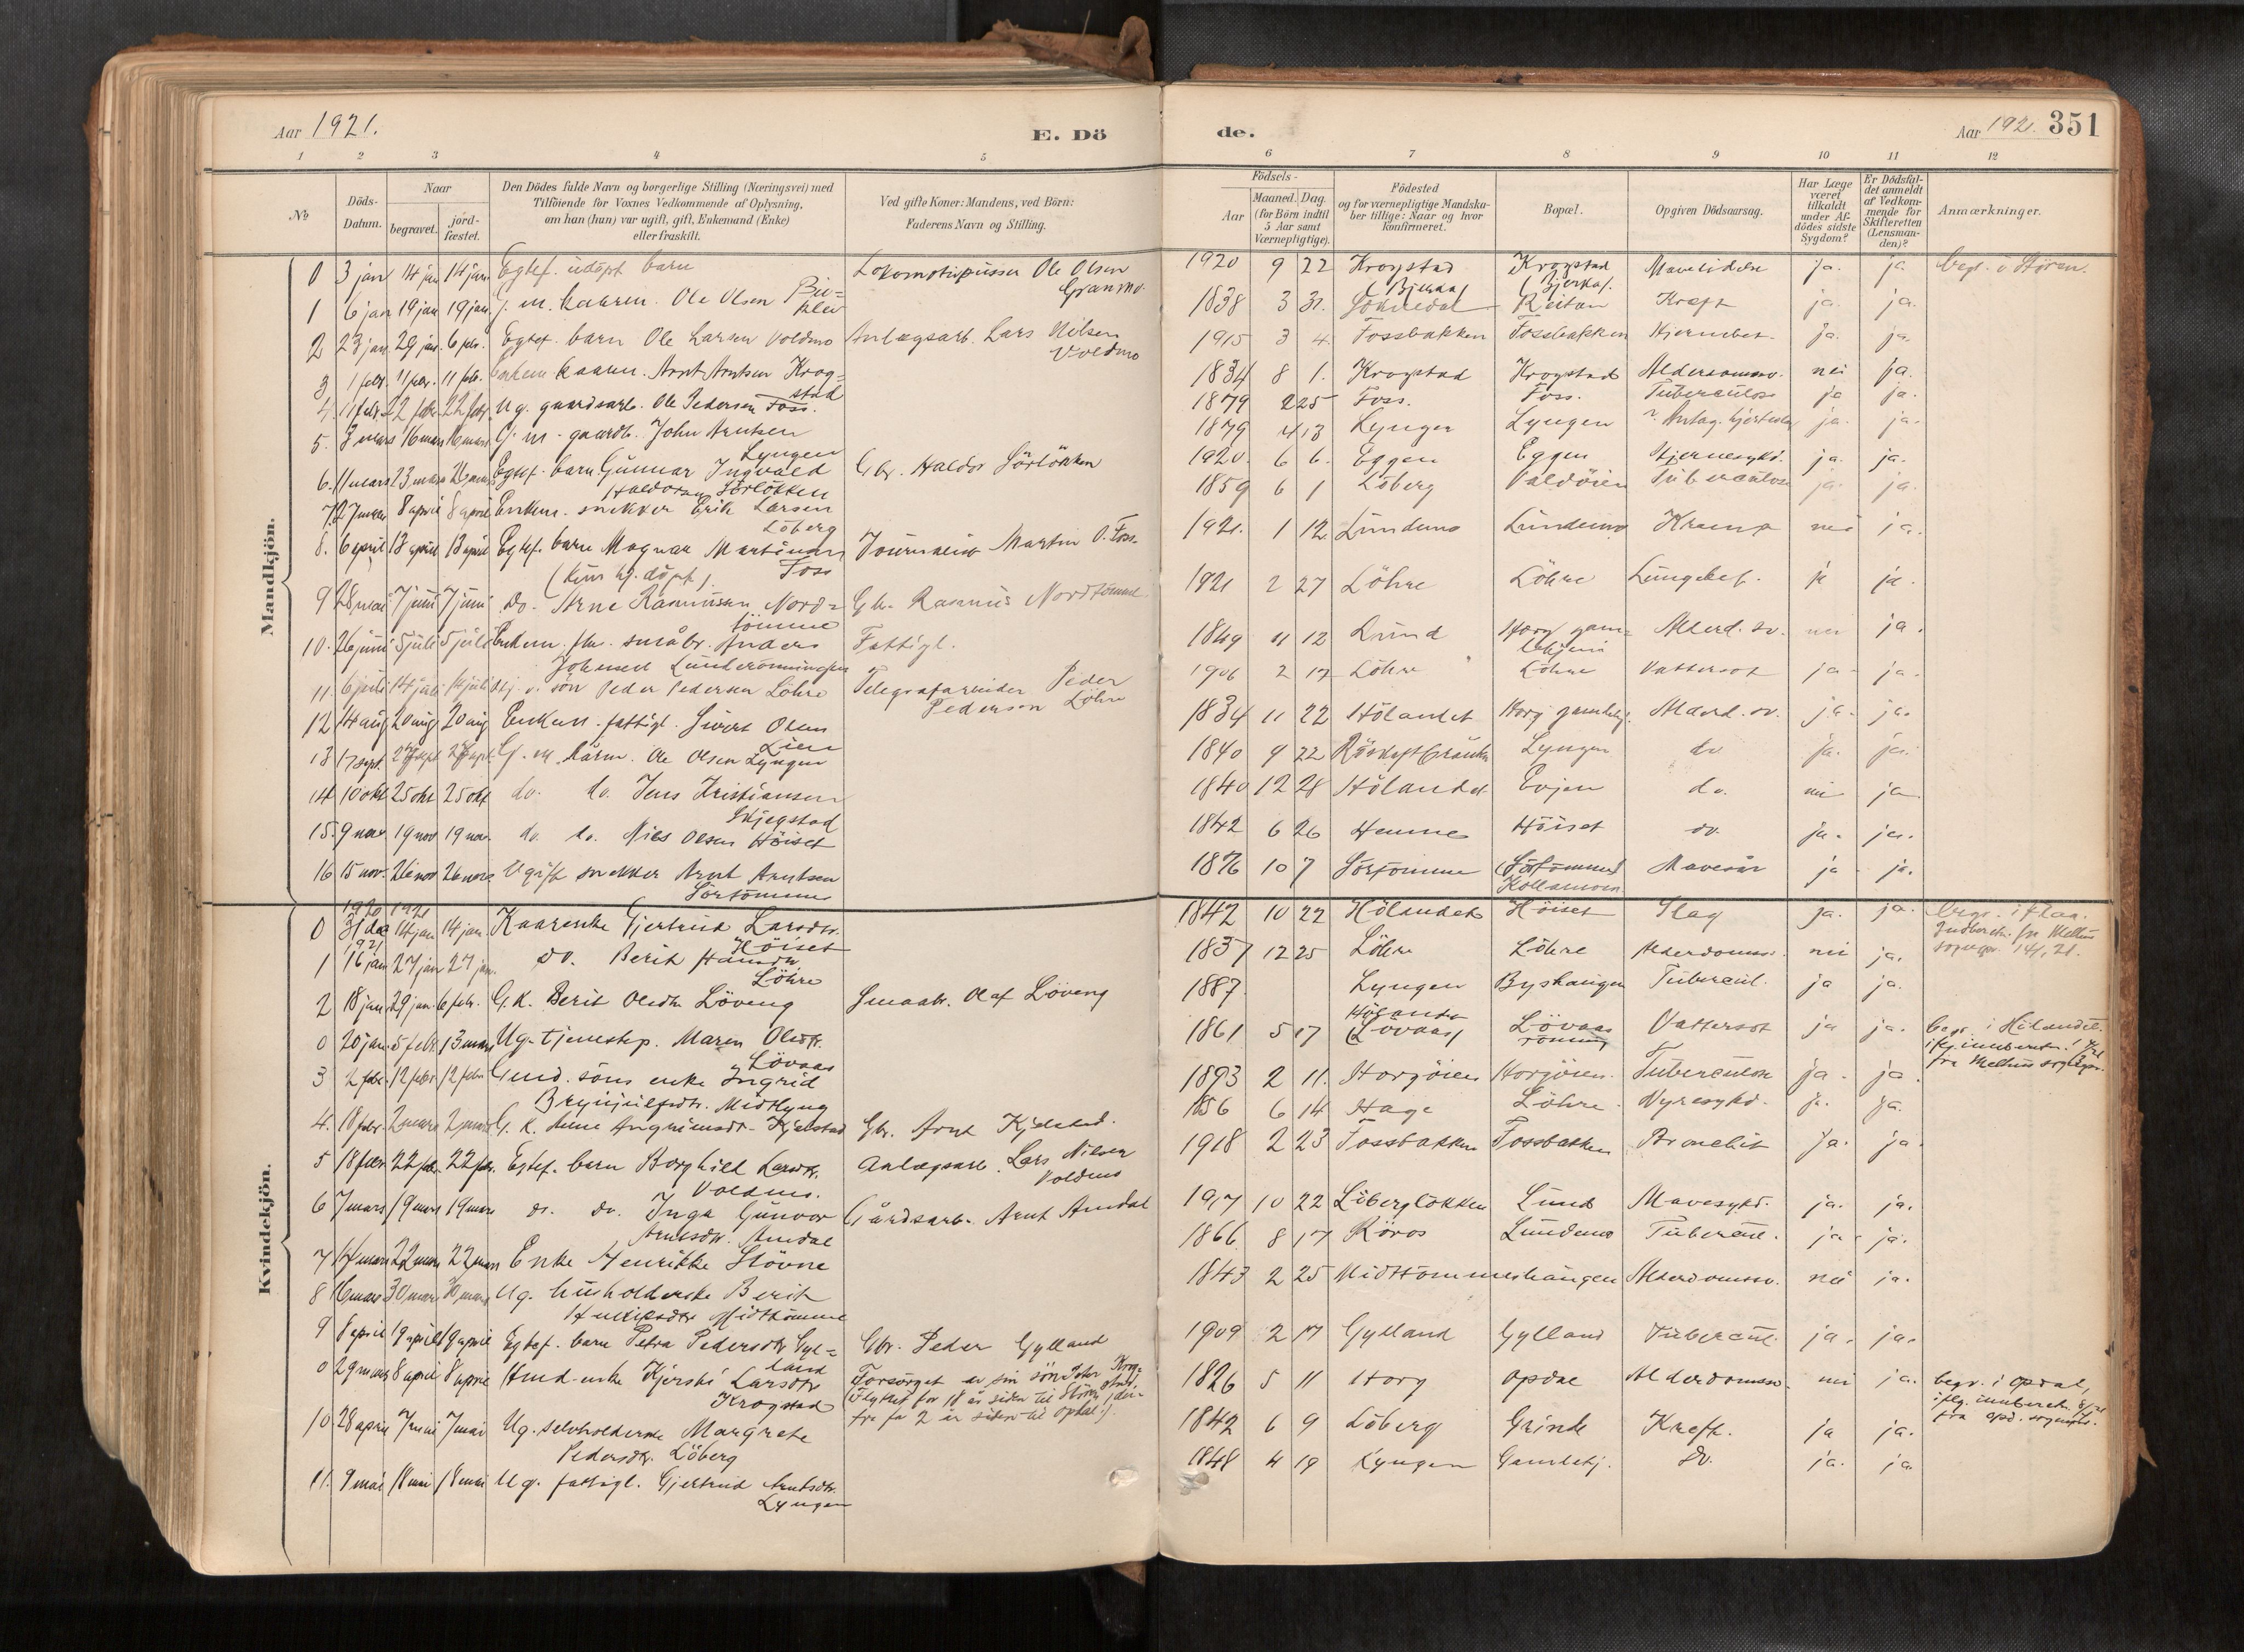 Aar 1921.
E. Dö
de.
Aar 1921. 351
1 2 3 4 5 6 7 8 9 10 11 12
No
Döds-Datum.
Naar
begravet.
jord-fæstet.
Den Dödes fulde Navn og borgerlige Stilling (Næringsvei) med
Tilföiende for Voxnes Vedkommende af Oplysning,
om han (hun) var ugift, gift, Enkemand (Enke)
eller fraskilt.
Ved gifte Koner: Mandens, ved Börn:
Faderens Navn og Stilling.
Födsels-
Aar
Maaned. Dag.
(for Börn indtil
5 Aar samt
Værnepligtige).
Födested
og for værnepligtige Mandska-
ber tillige: Naar og hvor
konfirmeret.
Bopæl.
Opgiven Dödsaarsag.
Har Læge
været
tilkaldt
under Af-
dödes sidste
Sygdom?
Er Dödsfal-
det anmeldt
af Vedkom-
mende for
Skifteretten
(Lensman-
den)?
Anmærkninger.
Mandkjön.
0 3 jan 14 jan 14 jan Egtef. udöpt barn Lokomotivpusser Ole Olsen Granmo 1920 9 22 Krogstad (Bjerka) Krogstad (Bjerka). Mavelidelse ja. ja begr. i Stören.
1 6 jan 19 jan 19 jan. G. m. kaarm. Ole Olsen 1838 3 31. Soknedal Reitan Kræft ja. ja.
2 23 jan 29 jan. 6 febr. Egtef. barn Ole Larsen Voldmo Anlægsarb. Lars Nilsen Voldmo 1915 3 4. Fossbakken Fossbakken Hjernebet. ja. ja.
3 1 febr. 11 febr. 11 feb. Enkem kaarm. Arnt Arntsen Krog=stad 1834 8 1. Krogstad Krogstad Aldersomsv. nei ja.
4. 11 febr. 22 febr. 22 febr. Ug. gaardsarb. Ole Pedersen Foss. 1879 2 25 Foss. Foss. Tuberculose ja ja.
5. 3 mars 16 mars 16 mars G. m. gaardb. John Arntsen Lyngen 1879 4 13 Lyngen Lyngen ? Antag. hjertesl. ja. ja.
6. 11 mars 23 mars 23 mars Egtef. barn Gunnar Ingvald Haldorsen Sörlökken Gbr. Haldor Sörlökken 1920. 6 6. Eggen Eggen Hjernesykd. ja. ja.
7. 27 mars 8 april 8 april Enkem. snekker Erik Larsen Löberg 1859 6 1 Löberg Valdöien Tuberculose ja. ja.
8. 6 april 13 april 13 april Egtef. barn Magnar Martinsen Foss (kun hj. döpt). Journalist Martin O. Foss 1921. 1 12. Lundemo Lundemo Krampe nei ja.
9 28 mai 7 juni 7 juni do. Arne Rasmussen Nord=tömme Gbr. Rasmus Nordtömme 1921 2 27 Löhre Löhre Lungebet. ja ja.
10. 26 juni 5 juli 5 juli Enkem. fhv. småbr. Anders Johnsen Lunderönningen Fattigl. 1849 11 12 Lund Horg gam=lehjem Alderd. sv. nei ja.
11. 6 juli 14 juli 14 juli sön Peder Pedersen Löhre Telegrafarbeider Peder Pedersen Löhre 1906 2 17 Löhre Löhre Vattersot ja ja.
12 14 aug 20 aug 20 aug Enkem. fattigl. Sivert Olsen Lien 1834 11 22 Hölandet Horg gamlehj. Alderd. sv. ja. ja.
13 17 sept. 27 sept 27 sept. G. m. kårm. Ole Olsen Lyngen 1840 9 22 Lyngen do ja. ja.
14 10 okt 25 okt 25 okt do. do. Jens Kristiansen Skjegstad 1840 12 28 Hölandet Evjen do. nei ja
15. 9 nov. 19 nov 19 nov. do. do. Nils Olsen Höiset 1842 6 26 Hemne Höiset do. ja. ja.
16 15 nov. 26 nov 26 nov. Ugift snekker Arnt Arntsen Sörtömme 1876 10 7 Sörtömme (Sörtömme) Kollamoen Mavesår ja ja.
Kvindekjön.
0 1920 31 dec 1921 14 jan 14 jan. Kaarenke Gjertrud Larsdtr. Höiset 1842 10 22 Hölandet Höiset Slag ja. ja. begr. i Flaa. Indberetn. fra Melhus sognepr. 14/1, 21.
1 1921 16 jan 27 jan 27 jan. do. Berit Hansdtr Löhre 1837 12 25 Löhre Löhre Alderdomssv. nei ja.
2 18 jan. 29 jan. 6 febr. G. K. Berit Olsdtr Löveng Smaabr. Olaf Löveng 1887. Lyngen Byshaugen Tubercul. ja ja.
0 20 jan. 5 febr. 13 mars Ug. tjenestep. Maren Olsdtr. Lövaas 1861 5 17 Hölandet (Lövaas) Lövaas rönning Vattersot ja ja. begr. i Hölandet. iflg. innberetn. fra Melhus
3 2 febr. 12 febr. 12 febr Gmd. söns enke Ingrid Brynjulfsdtr. Midtlyng 1893 2 11. Horgöien Horgöien. Tuberculose ja. ja
4. 18 febr. 2 mars 2 mars G. K. Anne Ingebrigtsdtr. Kjelstad Gbr. Arnt Kjelstad. 1856 6 14 Hage Löhre. Nyresykd. ja. ja.
5 18 febr 22 febr. 22 febr. Egtef. barn Borghild Larsdtr. Voldmo. Anlægsarb. Lars Nilsen Voldmo 1918 2 23 Fossbakken Fossbakken Bronchit ja. ja
6 7 mars 19 mars 19 mars do. do. Inga Gunvor Arntsdtr. Amdal Gårdsarb. Arnt Amdal 1917 10 22 Löberglökken Lund Mavesykd. ja. ja.
7 14 mars 22 mars 22 mars Enke Henrikke Stövne 1866 8 17 Röros Lundemo Tubercul. ja. ja.
8 16 mars 30 mars 30 mars Ug. husholderske Berit Midttömme 1843 2 25 Midttömmeshaugen Alderdomssv. nei ja.
9 8 april 19 april 19 april Egtef. barn Petra Pedersdtr Gyl=land Gbr. Peder Gylland 1909 2 17 Gylland Gylland Tubercul. ja. ja.
0 29 mars 8 april 8 april Hmd. enke Kjersti Larsdtr Krogstad Forsörget av sin sön Peter Krog=stad. (Flyttet for 18 år siden til Stören, der=fra for 2 år siden til Opdal.) 1826 5 11 Horg Opdal Alderdomssv. nei ja. begr. i Opdal, iflg. innberetn. 8/4 21 fra Opd. sogneprs.
10. 28 april 7 mai 7 mai Ug. selvholderske Margrete Pedersdtr. Löberg 1842 6 9 Löberg Grinde Kreft. ja ja.
11. 9 mai 18 mai 18 mai Ug. fattigl. Gjertrud Arntsdtr. Lyngen 1848 4 19 Lyngen Gamlehj. do. ja. ja.